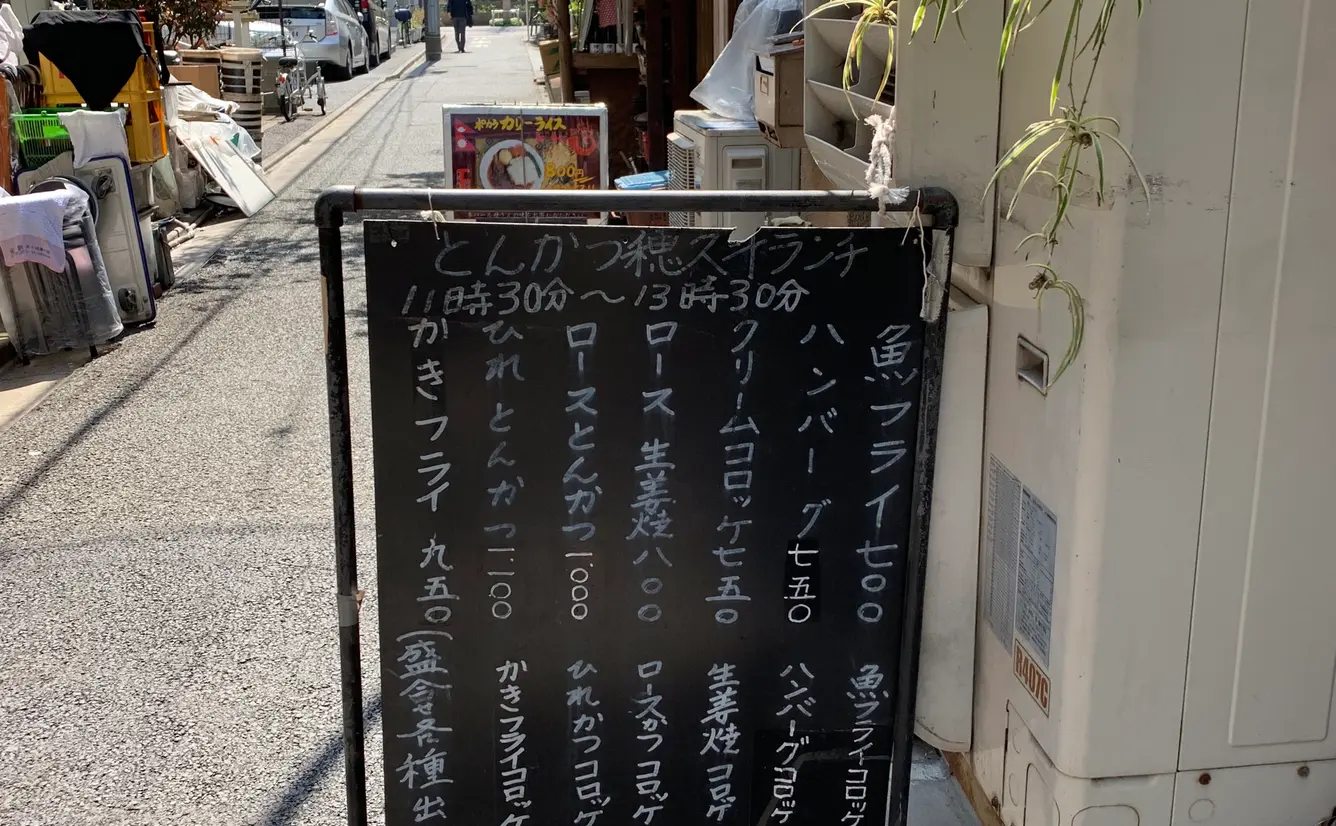 カリーライス
800円
とんかつ穂スキランチ
11時30分～13時30分
魚フライ七〇〇
ハンバーグ七五〇
クリームコロッケ七五〇
ロース生姜焼八〇〇
ロースとんかつ一、〇〇〇
ひれとんかつ一、一〇〇
かきフライ 九五〇
魚フライコロッケ
ハンバーグコロッケ
生姜焼コロッケ
ロースかつコロッケ
ひれかつコロッケ
かきフライコロッケ
(盛合各種出
R407C